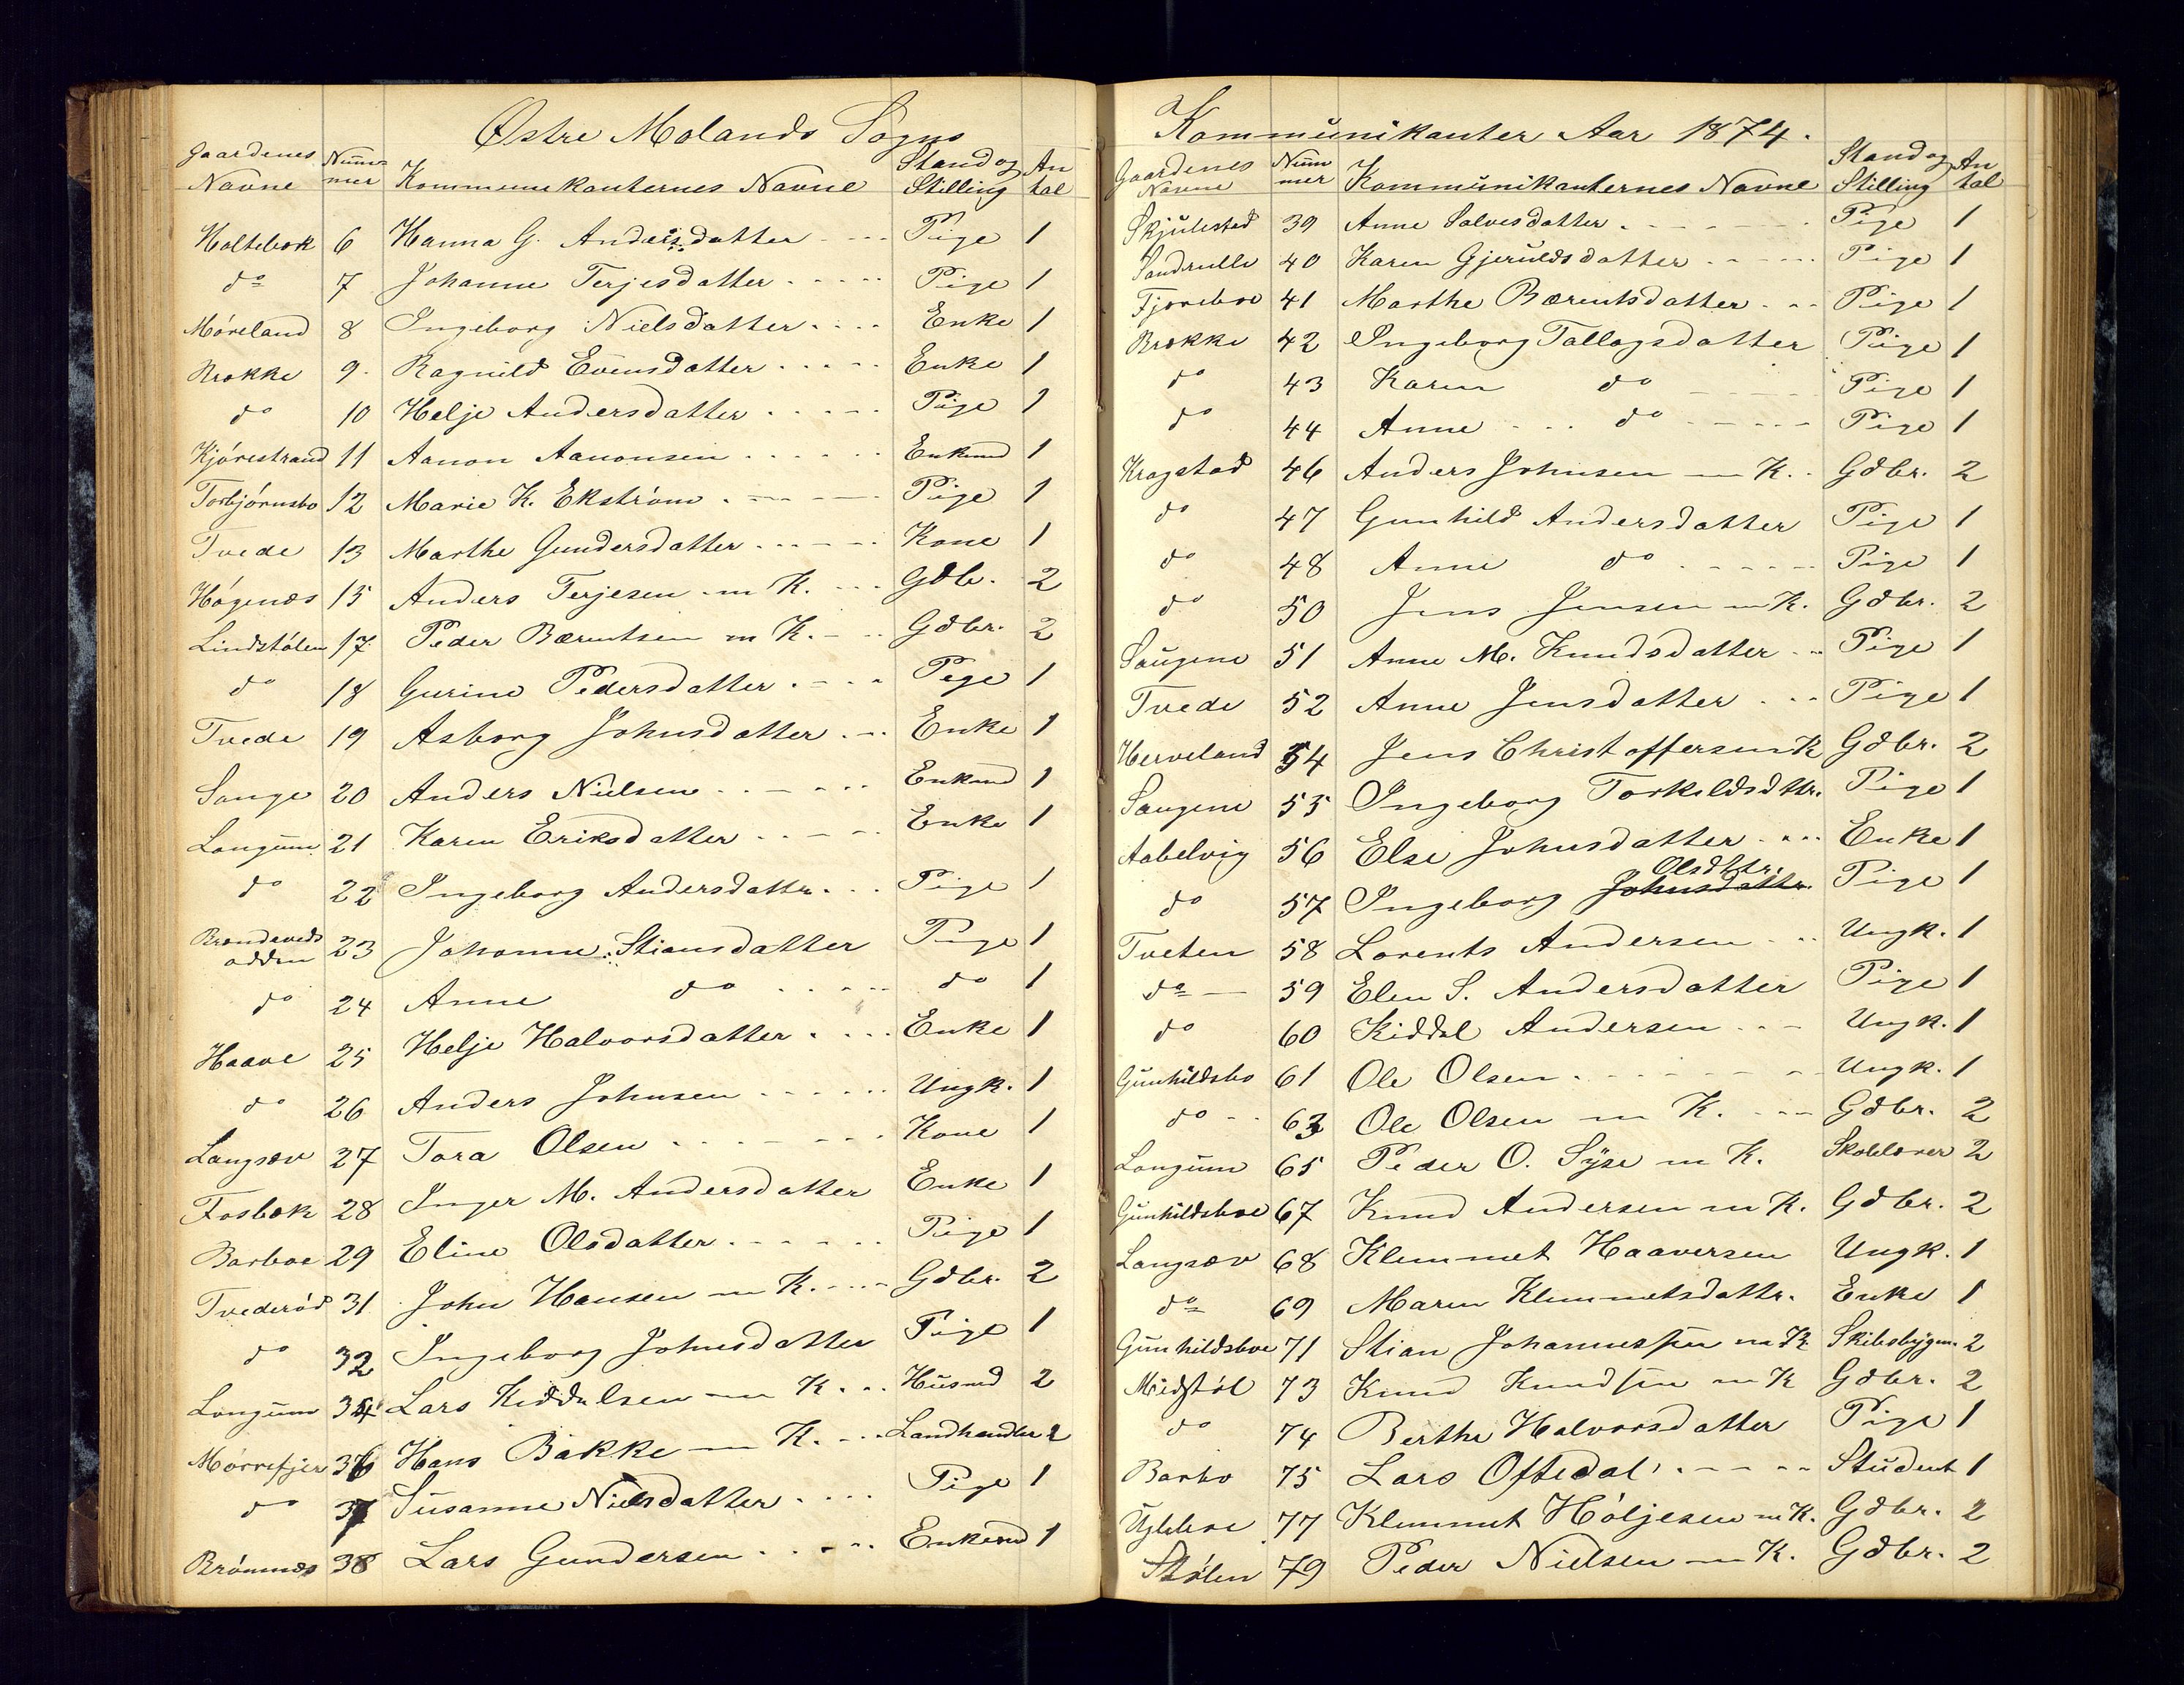 Østre Molands Sogns
Gaardenes Navne Nummer Kommunikanternes Navne Stand og Stilling Antal
Holtebæk 6 Hanna G. Andersdatter Pige 1
do 7 Johanne Terjesdatter Pige 1
Møreland 8 Ingeborg Nielsdatter Enke 1
Brække 9 Ragnild Evensdatter Enke 1
do 10 Helje Andersdatter Pige 1
Kjørestrand 11 Aanon Aanonsen Enkmd 1
Torbjørnsbo 12 Marie K. Ekstrøm Pige 1
Tvede 13 Marthe Gundersdatter Kone 1
Høgenæs 15 Anders Terjesen m K. Gdbr. 2
Lindstølen 17 Peder Bærentsen m K. Gdbr. 2
do 18 Gurine Pedersdatter Pige 1
Tvede 19 Asborg Johnsdatter Enke 1
Sange 20 Anders Nielsen Enkmd 1
Longum 21 Karen Eriksdatter Enke 1
do 22 Ingeborg Andersdattr. Pige 1
Brændevedsodden 23 Johanne Stiansdatter Pige 1
do 24 Anne do do 1
Haave 25 Helje Halvorsdatter Enke 1
do 26 Anders Johnsen Ungk. 1
Langsæv 27 Tora Olsen Kone 1
Fosbæk 28 Inger M. Andersdatter Enke 1
Barboe 29 Eline Olsdatter Pige 1
Tvederød 31 John Hansen m K. Gdbr. 2
do 32 Ingeborg Johnsdatter Pige 1
Longum 34 Lars Kiddelsen m K. Husmd 2
Mørefjer 36 Hans Bakke m K. Landhandler 2
do 37 Susanne Nielsdatter Pige 1
Brømnæs 38 Lars Gundersen Enkemd 1
Kommunikanter Aar 1874.
Gaardenes Navne Nummer Kommunikanternes Navne Stand og Stilling Antal
Skjulestad 39 Anne Salvesdatter Pige 1
40 Karen Gjeruldsdatter Pige 1
Fjæreboe 41 Marthe Bærentsdatter Pige 1
Brække 42 Ingeborg Tallagsdatter Pige 1
do 43 Karen do Pige 1
do 44 Anne do Pige 1
Kragstad 46 Anders Johnsen m K. Gdbr. 2
do 47 Gunhild Andersdatter Pige 1
do 48 Anne do Pige 1
do 50 Jens Jensen m K. Gdbr. 2
Saugene 51 Anne M. Knudsdatter Pige 1
Tvede 52 Anne Jensdatter Pige 1
Herveland 54 Jens Christoffersen m K Gdbr. 2
Saugene 55 Ingeborg Torkeldsdttr. Pige 1
Aabelvig 56 Else Johnsdatter Enke 1
Olsdttr.
do 57 Ingeborg Johnsdatter Pige 1
Tveten 58 Lorents Andersen Ungk. 1
do 59 Elen S. Andersdatter Pige 1
do 60 Kiddel Andersen Ungk. 1
Gunhildsbo 61 Ole Olsen Ungk. 1
do 63 Ole Olsen m K. Gdbr. 2
Longum 65 Peder O. Syse m K. Skolelærer 2
Gunhildsboe 67 Knud Andersen m K. Gdbr. 2
Langsæv 68 Klemmet Haaversen Ungk. 1
do 69 Maren Klemmetsdattr. Enke 1
Gunhildsboe 71 Stian Johannessen m K Skibsbygm. 2
Midstøl 73 Knud Knudsen m K Gdbr. 2
do 74 Berthe Halvorsdatter Pige 1
Barbo 75 Lars Oftedal Student 1
Ugleboe 77 Klemmet Høljesen m K. Gdbr. 2
Stølen 79 Peder Nielsen m K. Gdbr. 2